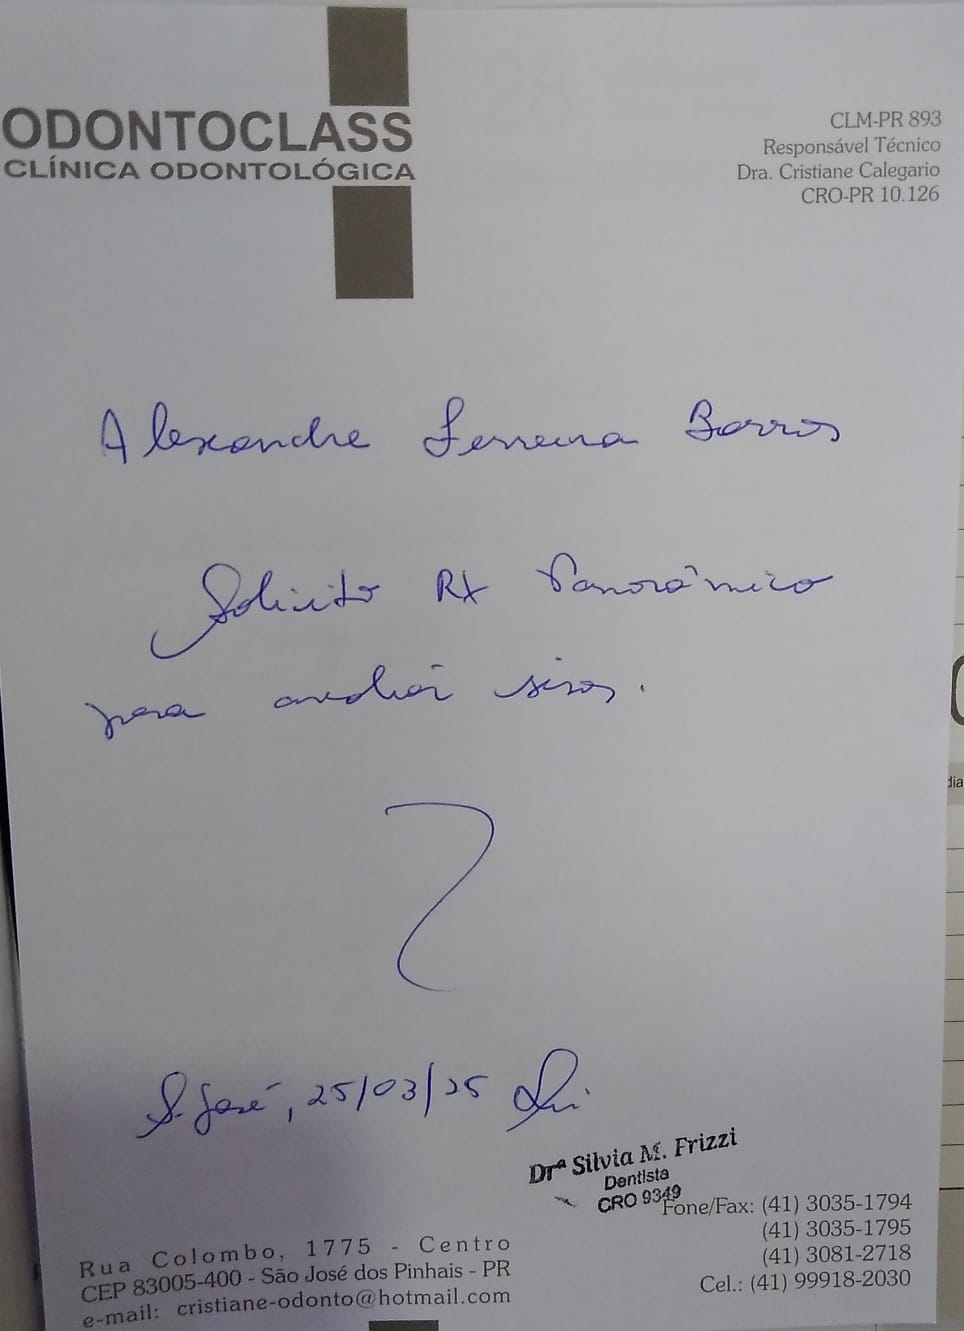 ODONTOCLASS
CLÍNICA ODONTOLÓGICA
CLM-PR 893
Responsável Técnico
Dra. Cristiane Calegario
CRO-PR 10.126
Alexandre Ferreira Barros
Solicito RX Panorâmico
para avaliar sisos.
S. José, 25/03/25
Drª Silvia M. Frizzi
Dentista
CRO 9349
Fone/Fax: (41) 3035-1794
(41) 3035-1795
(41) 3081-2718
Cel.: (41) 99918-2030
Rua Colombo, 1775 - Centro
CEP 83005-400 - São José dos Pinhais - PR
e-mail: cristiane-odonto@hotmail.com
dia